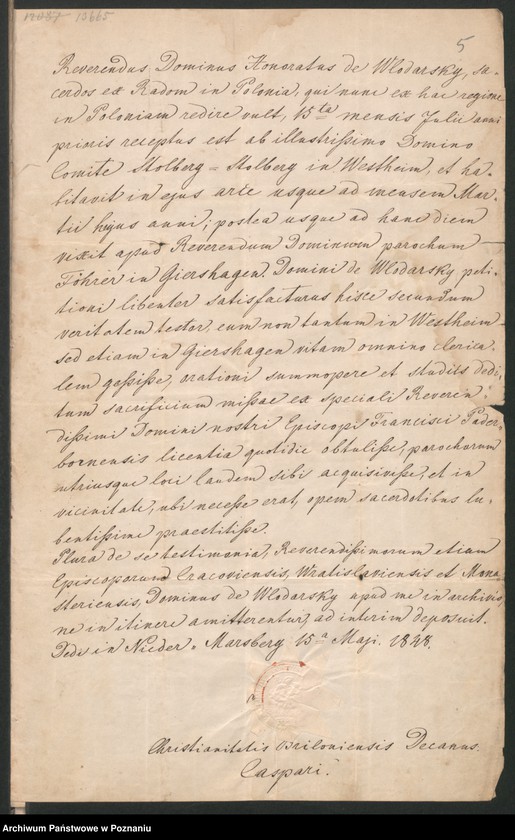 13665
5
Reverendus Dominus Honoratus de Wlodarsky, sa-
cerdos ex Radom in Polonia, qui nunc ex hac regione
in Poloniam redire vult, 15ta mensis Julii anni
prioris receptus est ab illustrissimo Domino
Comite Stolberg-Stolberg in Westheim, et ha-
bitavit in ejus arce usque ad mensem Mar-
tii hujus anni; postea usque ad hanc diem
vixit apud Reverendum Dominum parochum
Föhrer in Giershagen. Domini de Wlodarsky peti-
tioni libenter satisfacturus hisce secundum
veritatem testor, eum non tantum in Westheim
sed etiam in Giershagen vitam omnino clerica-
lem gessisse, orationi summopere et studiis dedi-
tum sacrificium missae ex speciali Reveren-
dissimi Domini nostri Episcopi Francisci Pader-
bornensis licentia quotidie obtulisse, parochorum
utriusque loci laudem sibi acquisivisse, et in
vicinitate, ubi necesse erat, opem sacerdotibus lu-
bentissime praestitisse.
Plura de se testimonia, Reverendissimorum etiam
Episcoporum Cracoviensis, Wratislaviensis et Mona-
steriensis, Dominus de Wlodarsky apud me in archivis,
ne in itinere amitterentur, ad interim deposuit.
Dedi in Nieder-Marsberg 15a Maji. 1848.
Christianitatis Briloniensis Decanus.
Caspari.
Archiwum Państwowe w Poznaniu